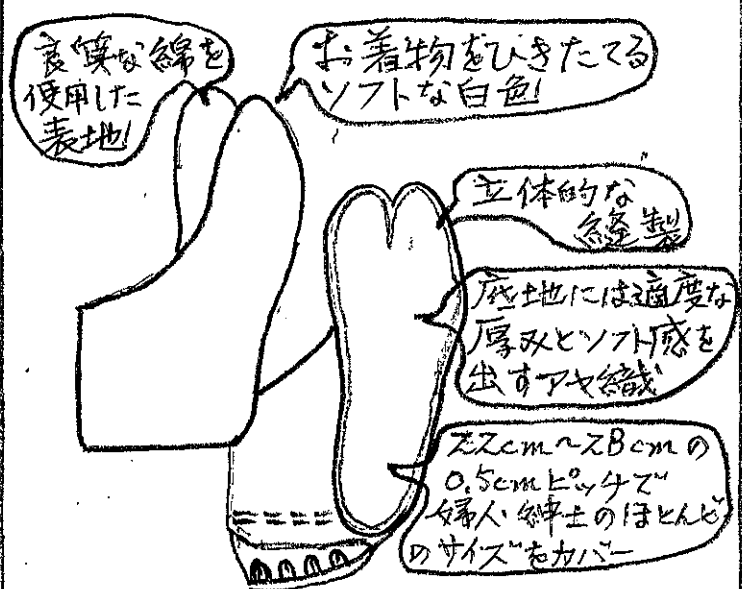 良質な綿を
使用した
表地!
お着物をひきたてる
ソフトな白色!
立体的な
縫製
底地には適度な
厚みとソフト感を
出すアヤ織
22cm~28cmの
0.5cmピッチで
婦人・紳士のほとんど
のサイズをカバー